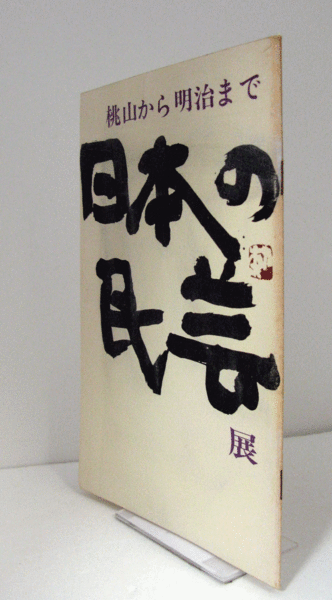 桃山から明治まで
日本の
民芸
展